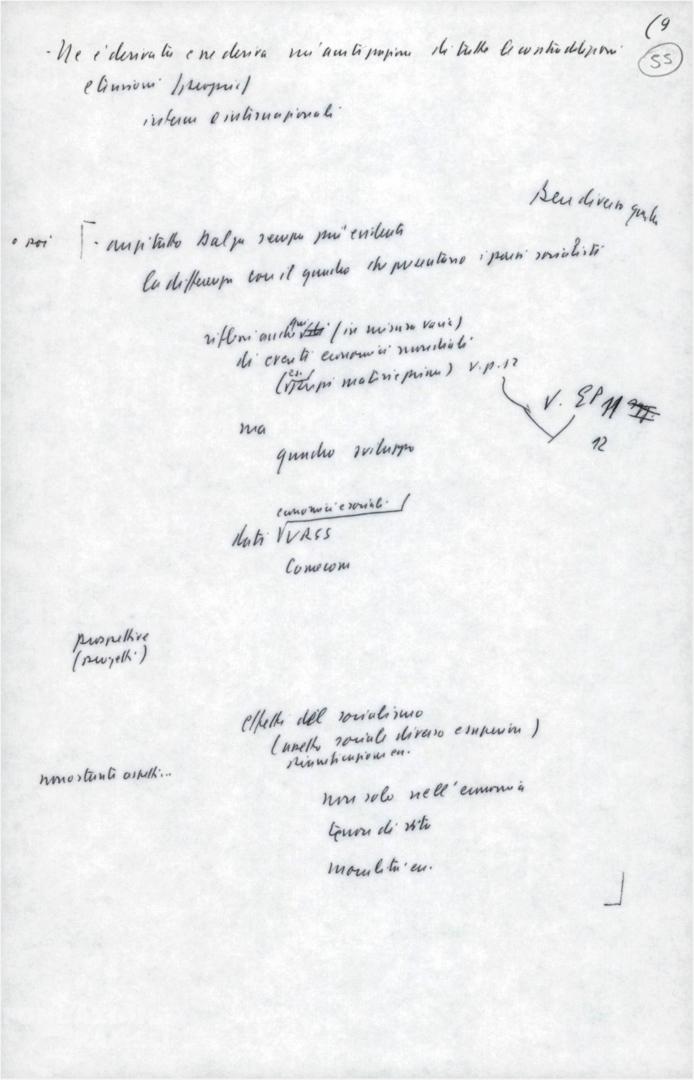 (9
55
- Ne è derivata e ne deriva un'accentuazione di tutte le contraddizioni
e tensioni
interne e internazionali
Ben diverso quadro
o poi
- anzitutto balza sempre più evidente
la differenza con il quadro che presentano i paesi socialisti
riflessi anche qui (in misura varia)
di eventi economici mondiali
(es. prezzi materie prime) v. p. 12
V. EP 11
12
ma
quadro sviluppo
economici e sociali
dati URSS
Comecon
prospettive
(progetti)
effetti del socialismo
(assetto sociale diverso e superiore)
pianificazione ec.
nonostante aspetti...
non solo nell'economia
tenore di vita
moralità ec.